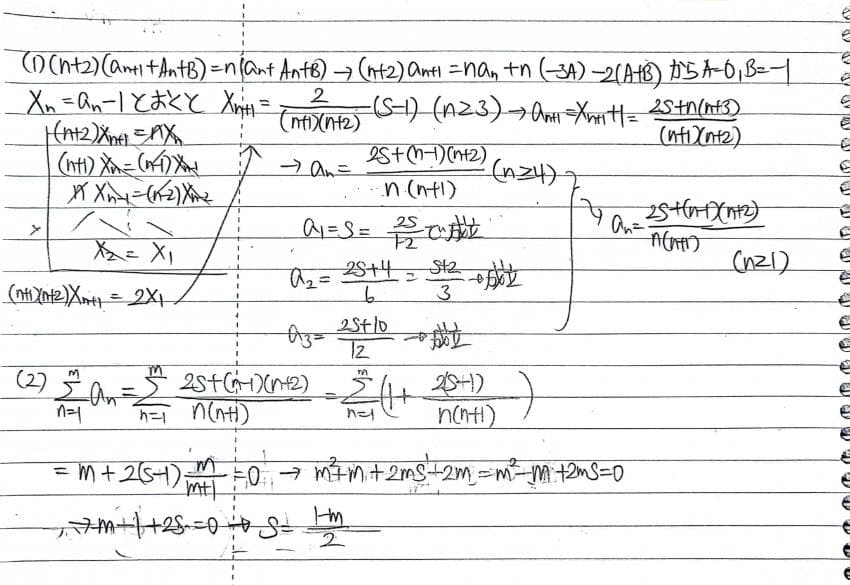 (1) (n+2)(an+1+An+B)=n(an+An+B)→(n+2)an+1=nan+n(-3A)-2(A+B)からA=0,B=-1
Xn=an-1とおくと Xn+1= 2/((n+1)(n+2)) (S-1) (n≥3)→an+1=Xn+1+1= (2S+n(n+3))/((n+1)(n+2))
(n+2)Xn+1=nXn
(n+1)Xn=(n-1)Xn-1
n Xn-1=(n-2)Xn-2
× X2=X1
(n+1)(n+2)Xn+1=2X1
→ an= (2S+(n-1)(n+2))/(n(n+1)) (n≥4)
a1=S= 2S/(1·2) で成立
a2= (2S+4)/6 = (S+2)/3 →成立
a3= (2S+10)/12 →成立
→ an= (2S+(n-1)(n+2))/(n(n+1))
(n≥1)
(2) Σ[n=1→m] an=Σ[n=1→m] (2S+(n-1)(n+2))/(n(n+1)) =Σ[n=1→m] (1+ 2(S-1)/(n(n+1)))
=m+2(S-1) m/(m+1) =0 → m²+m+2mS-2m=m²-m+2mS=0
→m-1+2S=0→S= (1-m)/2